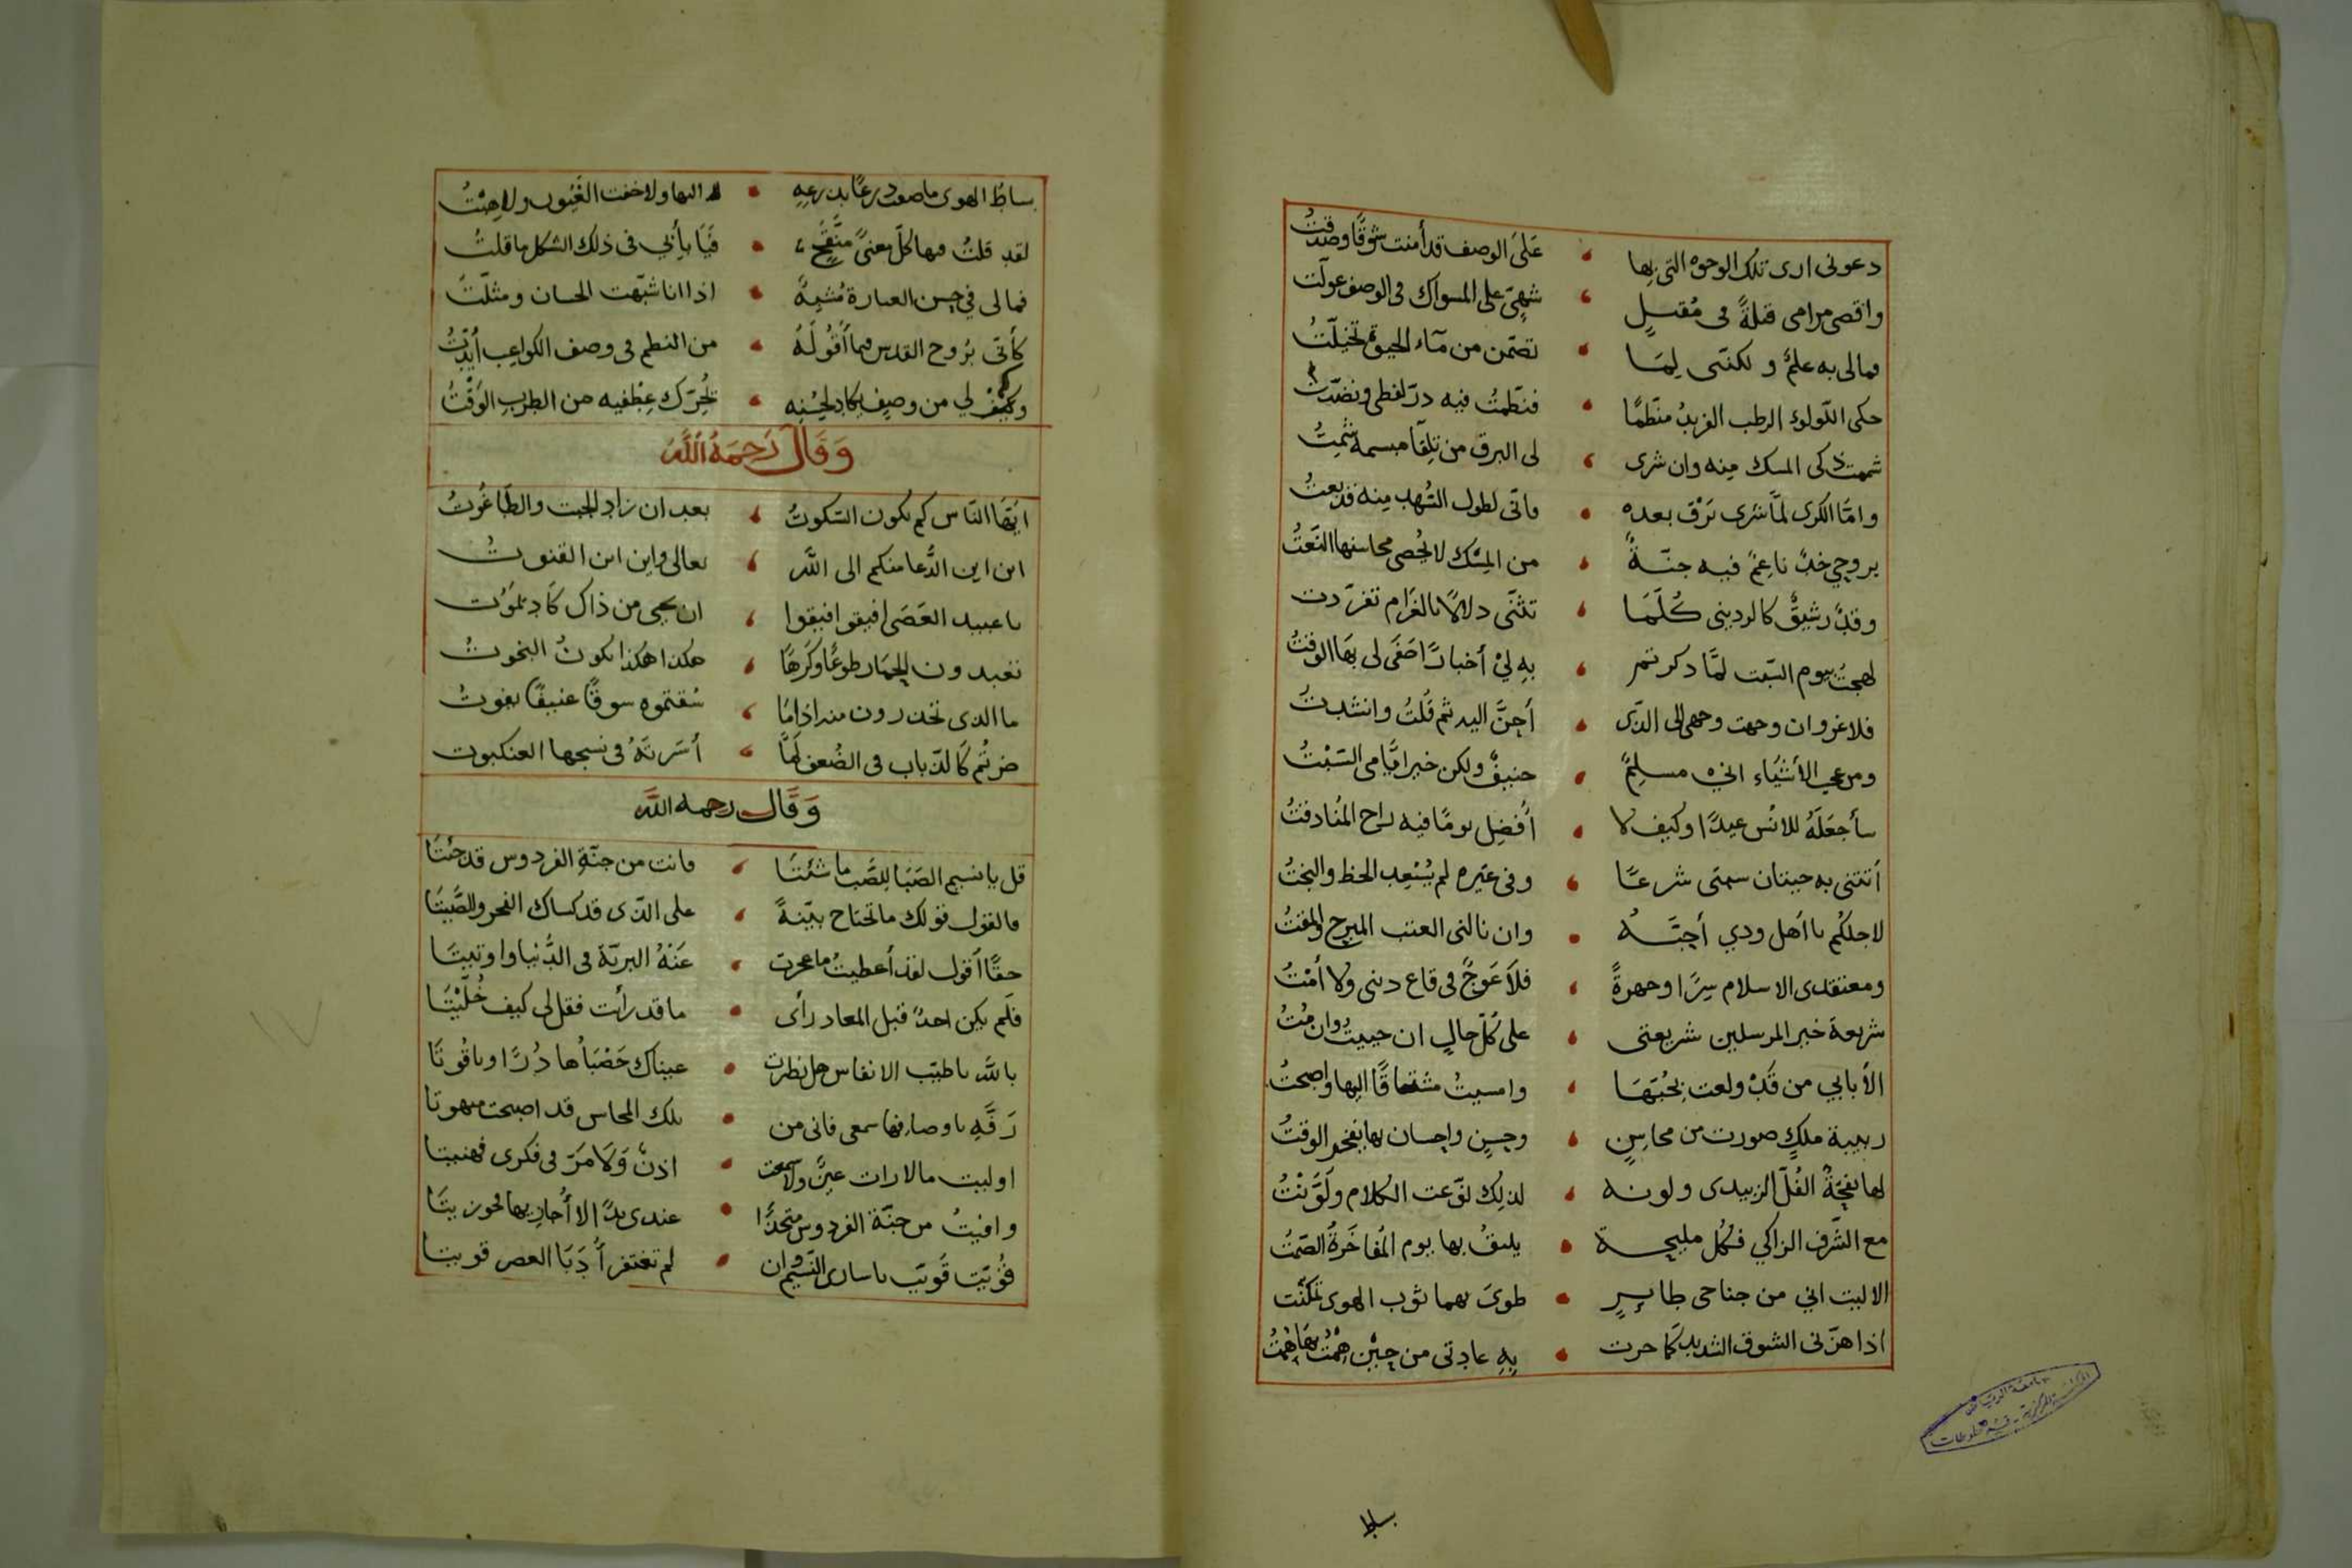 دعونى ارى تلك الوجوه التى بها • على الوصف قد أمنت شوقًا وصدقتُ
واقصى مرامى قبلةً فى مُقبلٍ • شهىّ على المسواك فى الوصف عولت
ومالى به علمٌ ولكننى لِمَا • تضمّن من مآء الحيوة تخيلتُ
حكى اللولو الرطب الفريدُ منظمًا • فنظمتُ فيه درّ لفظى ونضدتُ
شممت ذكى المسك منه وان شرى • لى البرق من تلقا مبسمه شمتُ
وامّا الكرى لمّا شرى برق بعده • فانى لطول السُهد منه قد بعتُ
بروحي خدٌ ناعمٌ فيه جنّةٌ • من المسك لا يُحصى محاسنها النعتُ
وقدٌ رشيقٌ كالردينى كُلّمَا • تثنّى دلالًا بالغرام تفرّدت
لهجتُ بيوم السبت لمّا ذكرتم • بهِ لىْ أخبارًا صَفَى لى بها الوقتُ
فلا غرو ان وجهت وجهى الى الذى • أحنّ اليه ثم قلتُ وانشدتُ
ومن عجب الأشيآء انى مسلمٌ • حنيفٌ ولكن خير ايّامى السَبْتُ
سأجعلَهُ للانْس عيدًا وكيف لا • أفضِل يومًا فيه راح المُنا دقتُ
أتتنى به حيتان سمتى شرعًا • وفى غيره لم يُسْعِد الحظ والبختُ
لاجلكُم يا أهل ودي أحبّهُ • وان نالنى العتب المبرح والمقتُ
ومعتقدى الاسلام سِرًا وجهرةً • فلا عَوجٌ فى قاع دينى ولا أمْتُ
شريعة خير المرسلين شريعتى • على كلّ حالٍ ان حييتُ وان متُ
الأبابي من قَدْ ولعت بحُبّهَا • وامسيتُ مشتاقًا اليها واصبحتُ
ربيبة ملكٍ صورت من محاسنٍ • وحسنٍ واحسان بها يفخر الوقتُ
لها نفحةُ الفُلّ الزبيدى ولونه • لذلك نوّعت الكلام ولَوَّنْتُ
مع الشَرف الزاكي فكل مليحة • يليقُ بها يوم المُفاخَرةُ الصَمتُ
الا ليت اني من جناحى طايرٍ • طوىَ بهما ثوب الهوى تمكّنت
اذا هزّنى الشوق الشديد كما جرت • بهِ عادتى من حِيْن هِمْتُ بها هِمْتُ
بساط
بساط الهوى ما ضعت ذرعًا بذرعهِ • اليها ولا خفت الغُيُوب ولا هِبْتُ
لقد قلتُ فيها كلّ معنىً منَقّحٍ • فَيَا بأبي فى ذلك الشكل ما قلتُ
فمالى فى حسن العبارة مُشبِهٌ • اذا انا شبّهت الحسان ومثلّتُ
كأنّى بُروح القدس فيما أقُولَهُ • من النظم فى وصف الكواعب أُيّدتُ
وكم لي من وصفٍ يكاد لحُسْنه • يُحرّك عِطْفيه من الطربِ الوَقْتُ
وَقَالَ رَحِمَهُ اللهُ
ايّهَا النّاس كم يكون السّكوتُ • بعد ان زاد الجبت والطّاغُوتُ
اين اين الدُّعا منكم الى اللّه • تعالى واين اين القنوتُ
يا عبيد العَصَى افيقوا افيقوا • ان يحيى من ذاك كَاد يَمُوت
تعبدون الحِمَار طوعًا وكَرهًا • هكذا هكذا يكونُ البخوتُ
ما الذى تحذرون منه اذا ما • سُقتموه سوقًا عنيفًا يفوتُ
صرتُم كَالذّباب فى الضُعف لَمَّا • أسَرتهُ فى نسجها العنكبوت
وَقَال رحمه اللّه
قل يا نسيم الصَبَا لِلصَّب ما شئتَا • فانت من جنّةِ الفردوس قد جئتَا
فالقول قولك ما تحتاج بيّنةً • على الذى قد كساك الفخر والصّيتَا
حقًا أقول لقد أعطيتُ ما عجزت • عَنْهُ البريّة فى الدُّنيا واوتيتَا
فلَم يكن احدٌ قبل المعاد رأى • ما قد رأت فقل لى كيف خُلّيْتَا
باللّه يا طيّب الانفاس هل نظرت • عيناك حَصْبَاُها دُرًا وياقُوتَا
رَفّهِ باوصافها سمعى فانى من • تلك المحاسن قد اصبحت مبهوتا
اوليت مالا رات عينٌ ولا سمعت • اذنٌ وَلَا مَرّ فى فكرى فهنيتا
وافيتُ من جنّة الفردوس متحذًا • عندى يدًا لا أُجازيها فحوزيتَا
قُوّيت قَويّت يا سارى النّسيم وان • لم تفتقر أبدًا العصر قويتا